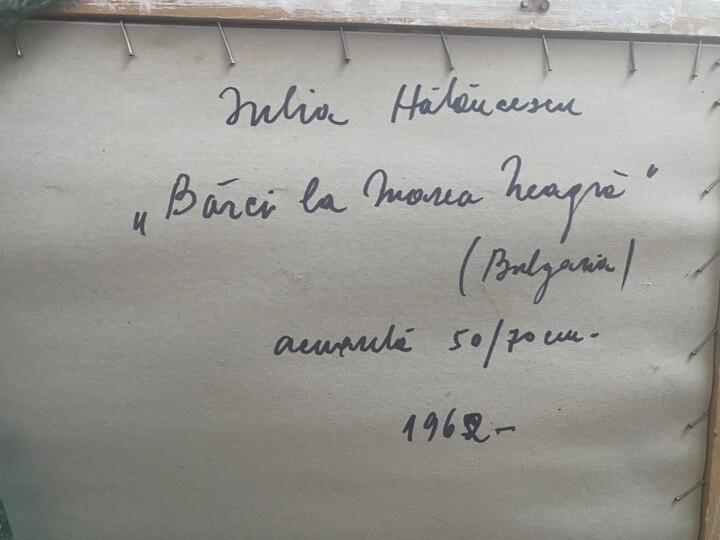 Iulia Hălăucescu
„Bărci la Marea Neagră"
(Bulgaria)
acuarelă 50/70 cm.
1962-